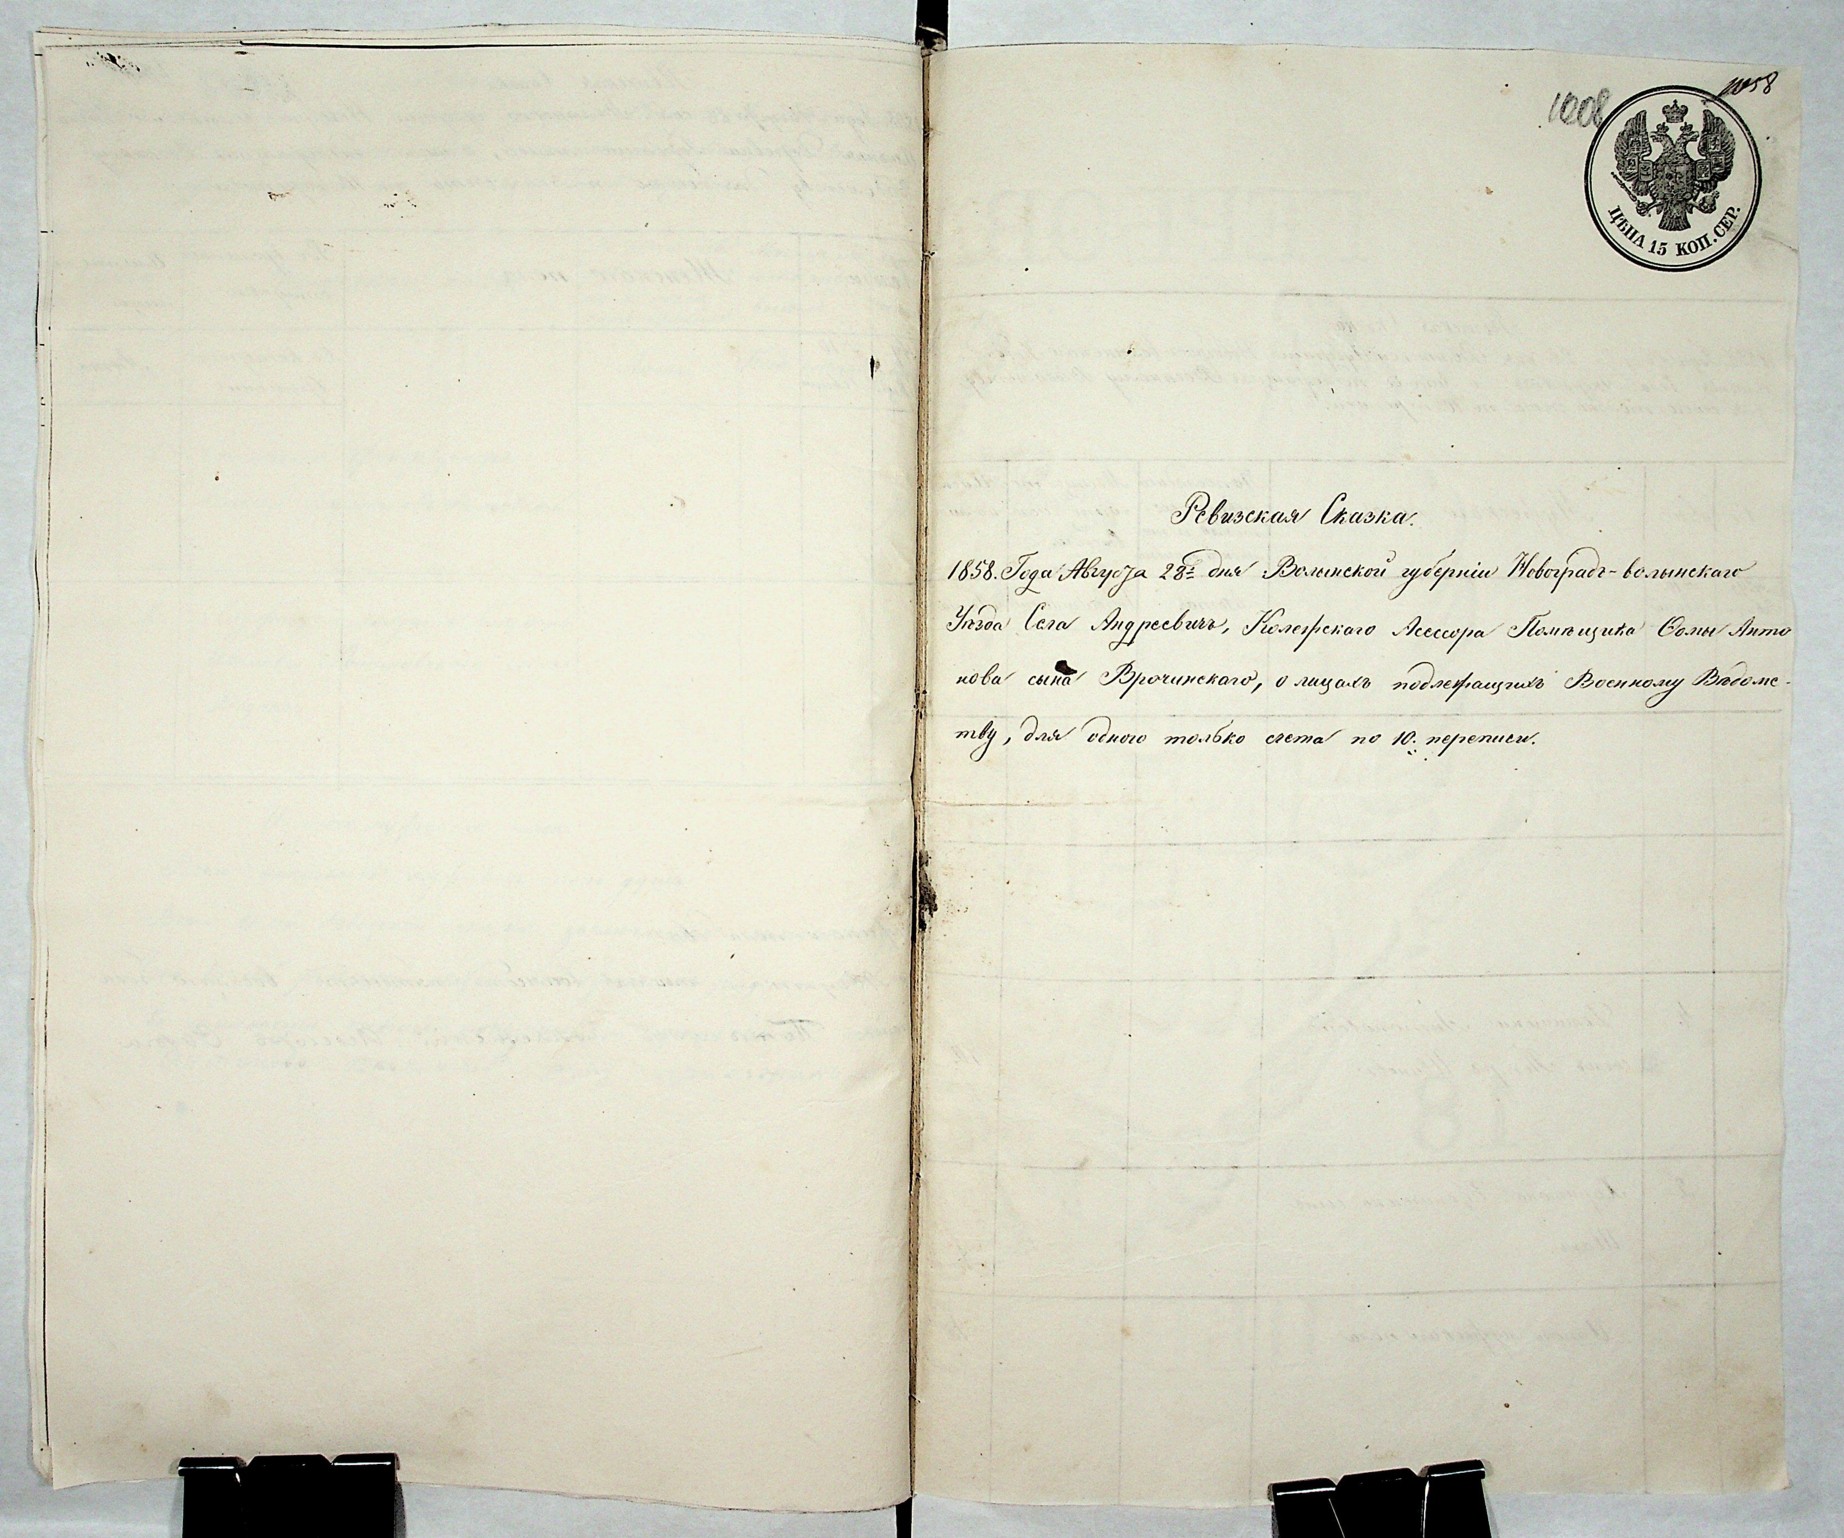 1008
1058
ЦѢНА 15 КОП. СЕР.
Ревизская Сказка.
1858. Года Августа 28го дня Волынской губерніи Новоградъ-волынскаго
Уѣзда Села Андреевичъ, Колежскаго Асессора Помѣщика Ѳомы Анто
нова сына Врочинскаго, о лицахъ подлежащихъ Военному Вѣдомс-
тву, для одного только счета по 10й переписи.